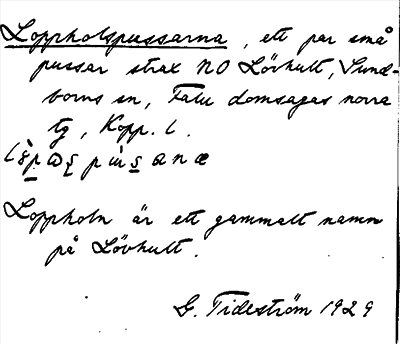 Loppholspussarna, ett par små
pussar strax NO Lövhult, Sund-
borns sn, Falu domsagas norra
tg, Kopp. l.
Loppholn är ett gammalt namn
på Lövhult.
G. Tideström 1929